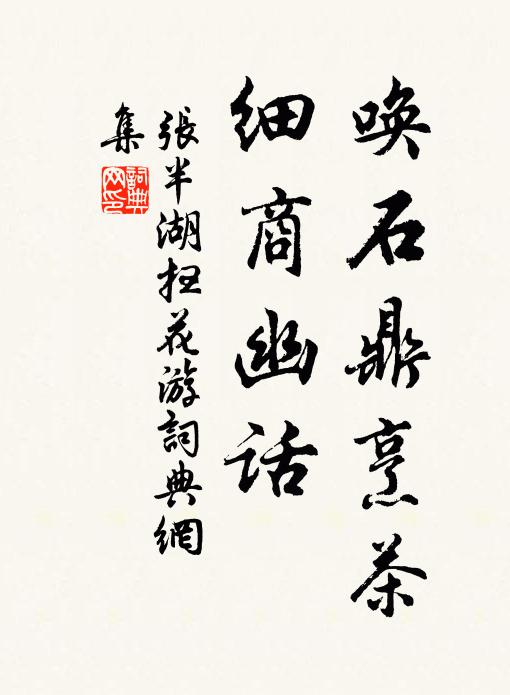 唤石鼎烹茶
细商幽话
張半湖扫花游詞典網
集
詞典网印